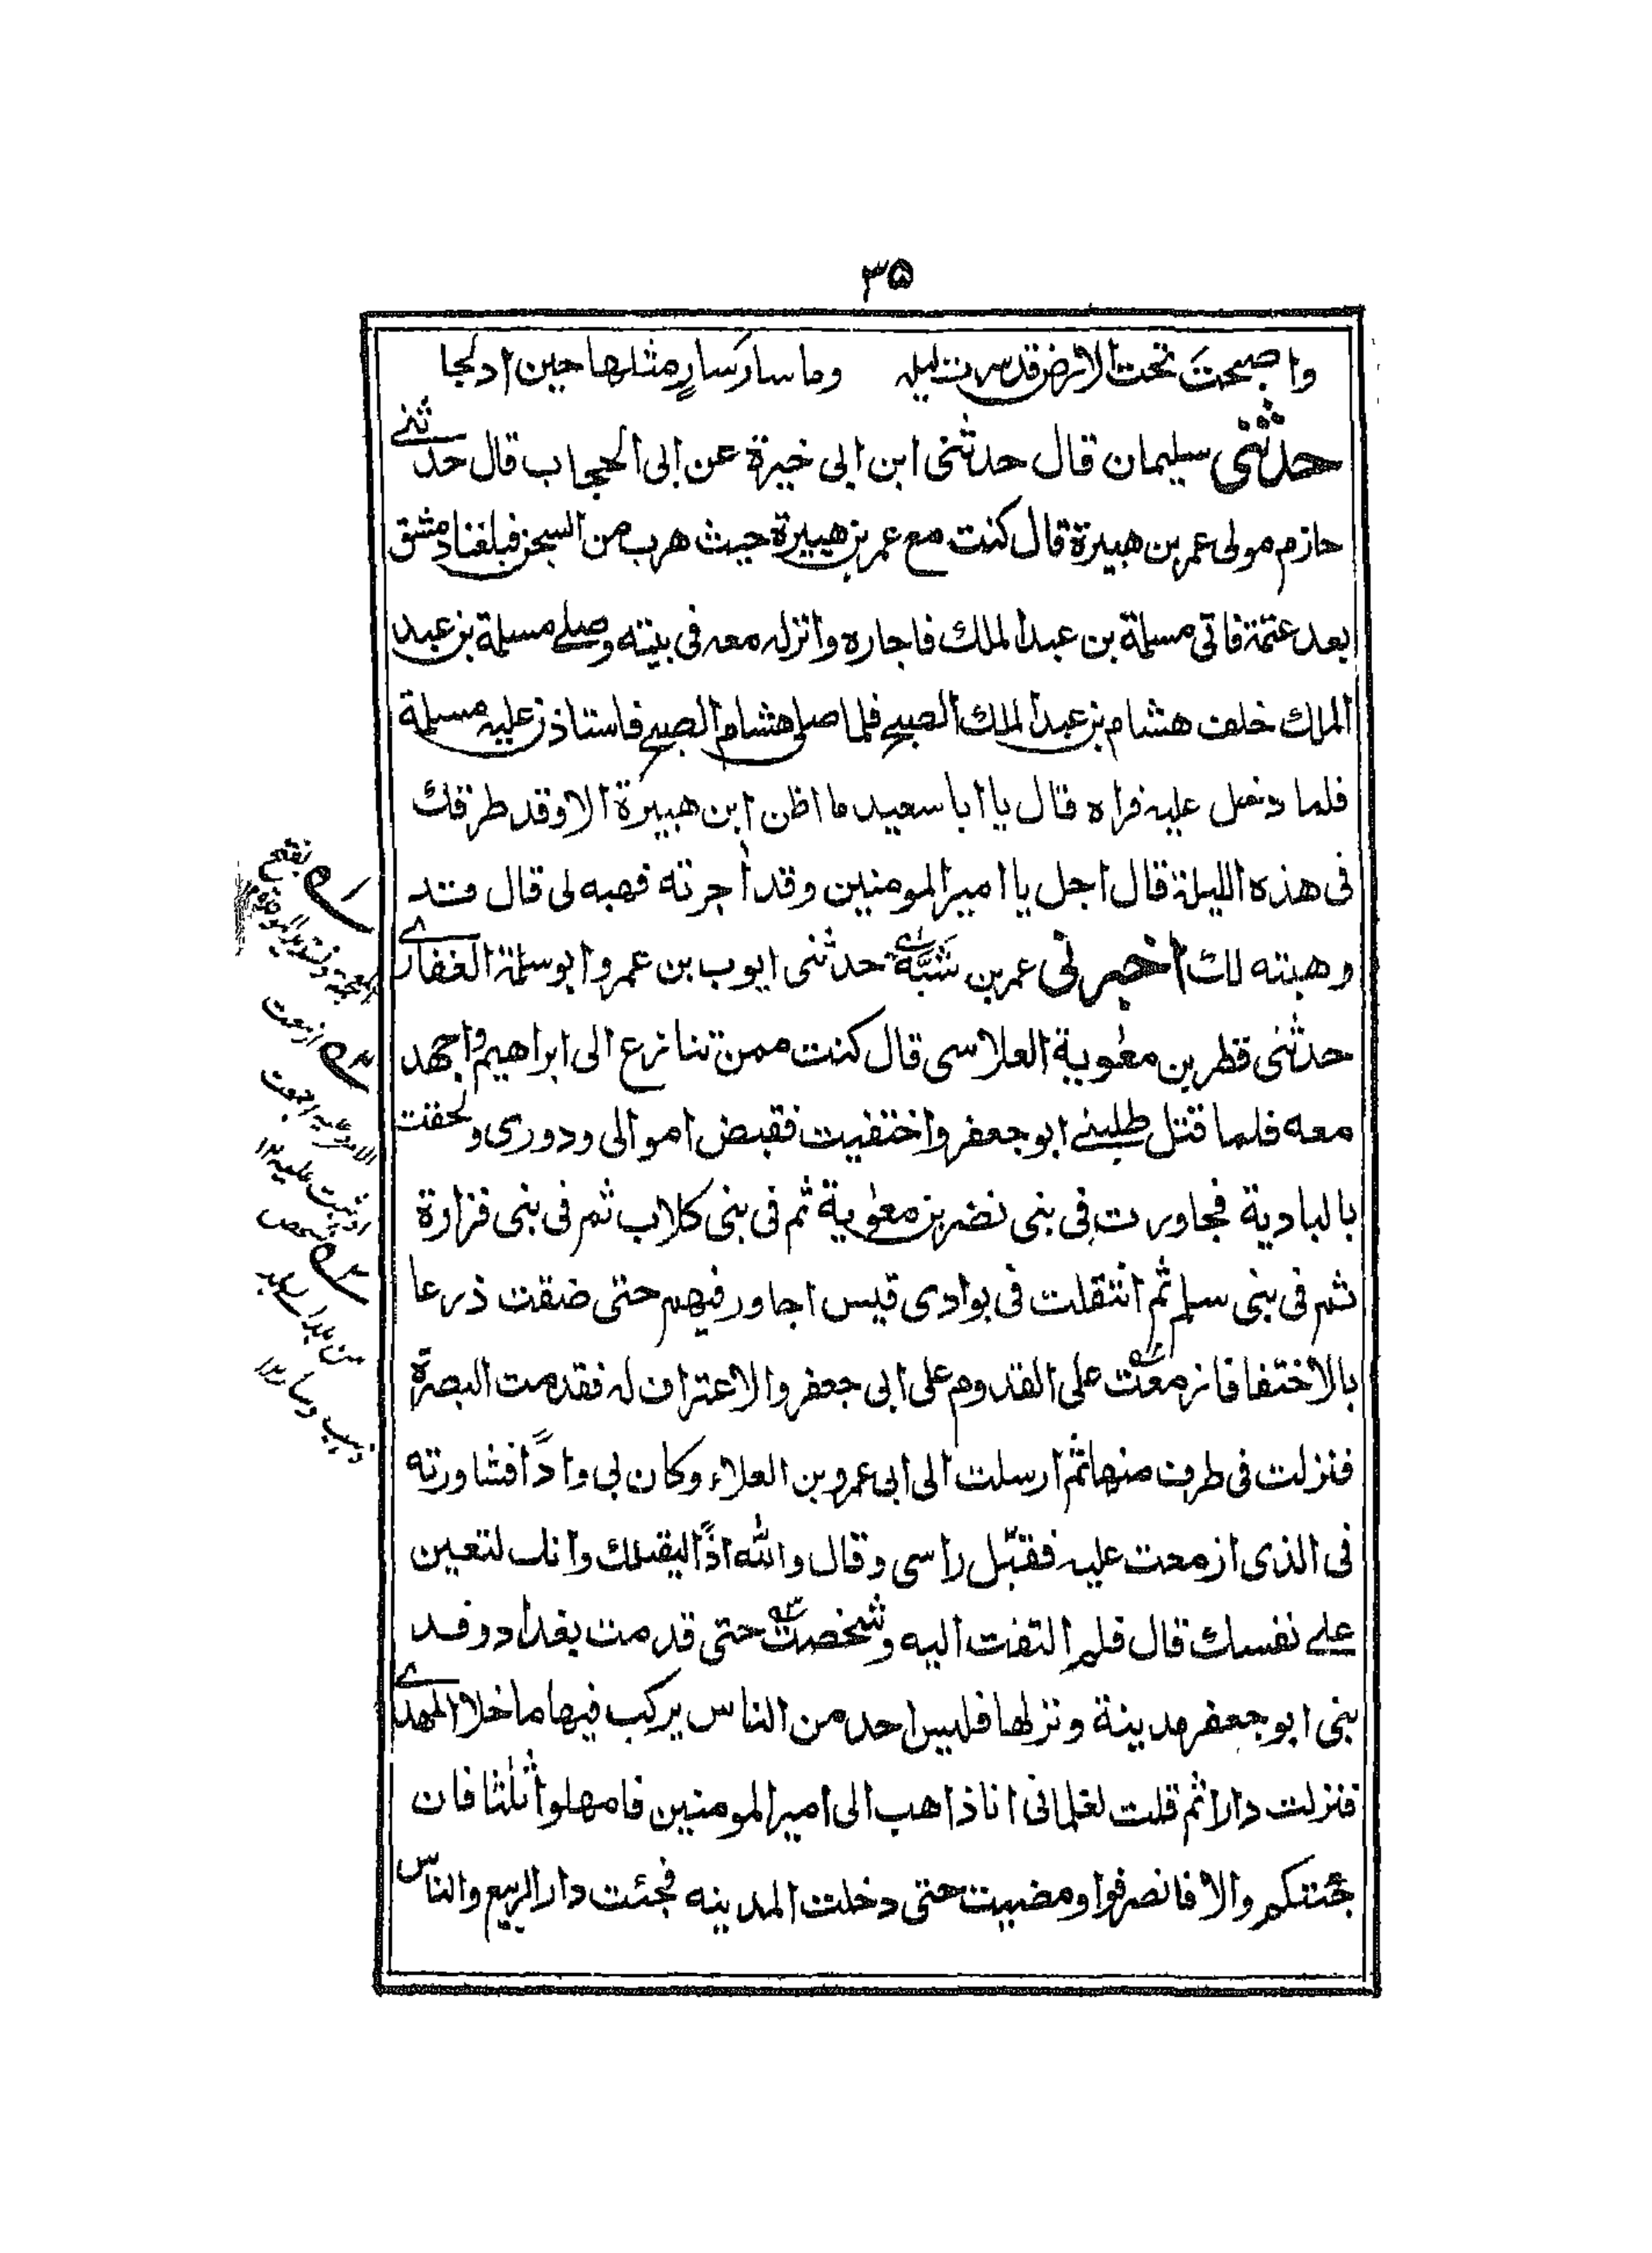 ۳۵
واصبحتَ تحت الارض قد سرت ليله وما سارَ سارٍ مثلها حين ادلجا
حدثنی سليمان قال حدثنی ابن ابی خيرة عن ابی الحجاب قال حدثنے
حازم مولی عمر بن هبيرة قال كنت مع عمر بن هبيرة حيث هرب من السجن فبلغنا دمشق
بعد عتمة فاتی مسلمة بن عبد الملك فاجاره وانزله معه فی بيته وصلے مسلمة بن عبد
الملك خلف هشام بن عبد الملك الصبح فلما صلی هشام الصبح فاستاذن عليه مسلمة
فلما دخل عليه فراه قال يا ابا سعيد ما اظن ابن هبيرة الا وقد طرقك
فی هذه الليلة قال اجل يا امير المومنين وقد أجرته فهبه لی قال قد
وهبته لك اخبرنی عمر بن شَبَّة حدثنی ايوب بن عمر وابو سلمة الغفارے
حدثنی قطر بن معٰوية العلاسی قال كنت ممن تنازع الی ابراهيم واجهد
معه فلما قتل طلبنے ابو جعفر واختفيت فقبض اموالی ودوری ولحقت
بالبادية فجاورت فی بنی نضر بن معٰوية ثم فی بنی كلاب ثم فی بنی فزارة
ثم فی بنی سلم ثم انتقلت فی بوادی قيس اجاور فيهم حتی ضقت ذرعا
بالاختفا فازمعت علی القدوم علی ابی جعفر والاعتراف له فقدمت البصرة
فنزلت فی طرف منها ثم ارسلت الی ابی عمرو بن العلاء وكان لی واداً فشاورته
فی الذی ازمعت عليه فقبّل راسی وقال والله اذاً ليقتلك وانك لتعين
علے نفسك قال فلم التفت اليه وشخصت حتی قدمت بغداد وقد
بنی ابو جعفر مدينة ونزلها فليس احد من الناس يركب فيها ما خلا المهدے
فنزلت دارا ثم قلت لغلمانی انا ذاهب الی امير المومنين فامهلوا ثلٰثا فان
جئتكم والا فانصرفوا ومضيت حتی دخلت المدينه فجئت دار الربيع والناس
بفتح
ازمعت